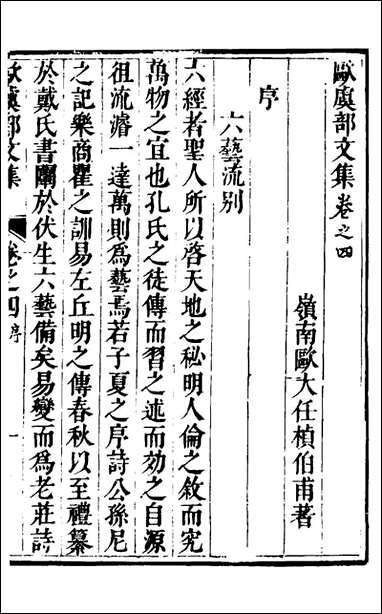 歐虞部文集卷之四
嶺南歐大任楨伯甫著
序
六藝流别
六經者聖人所以啓天地之秘明人倫之敘而究
萬物之宜也孔氏之徒傳而習之述而効之自源
祖流濬一達萬則為藝焉若子夏之序詩公孫尼
之記樂商瞿之訓易左丘明之傳春秋以至禮纂
於戴氏書闡於伏生六藝備矣易變而為老莊詩
歐虞部文集
卷之四
序
一